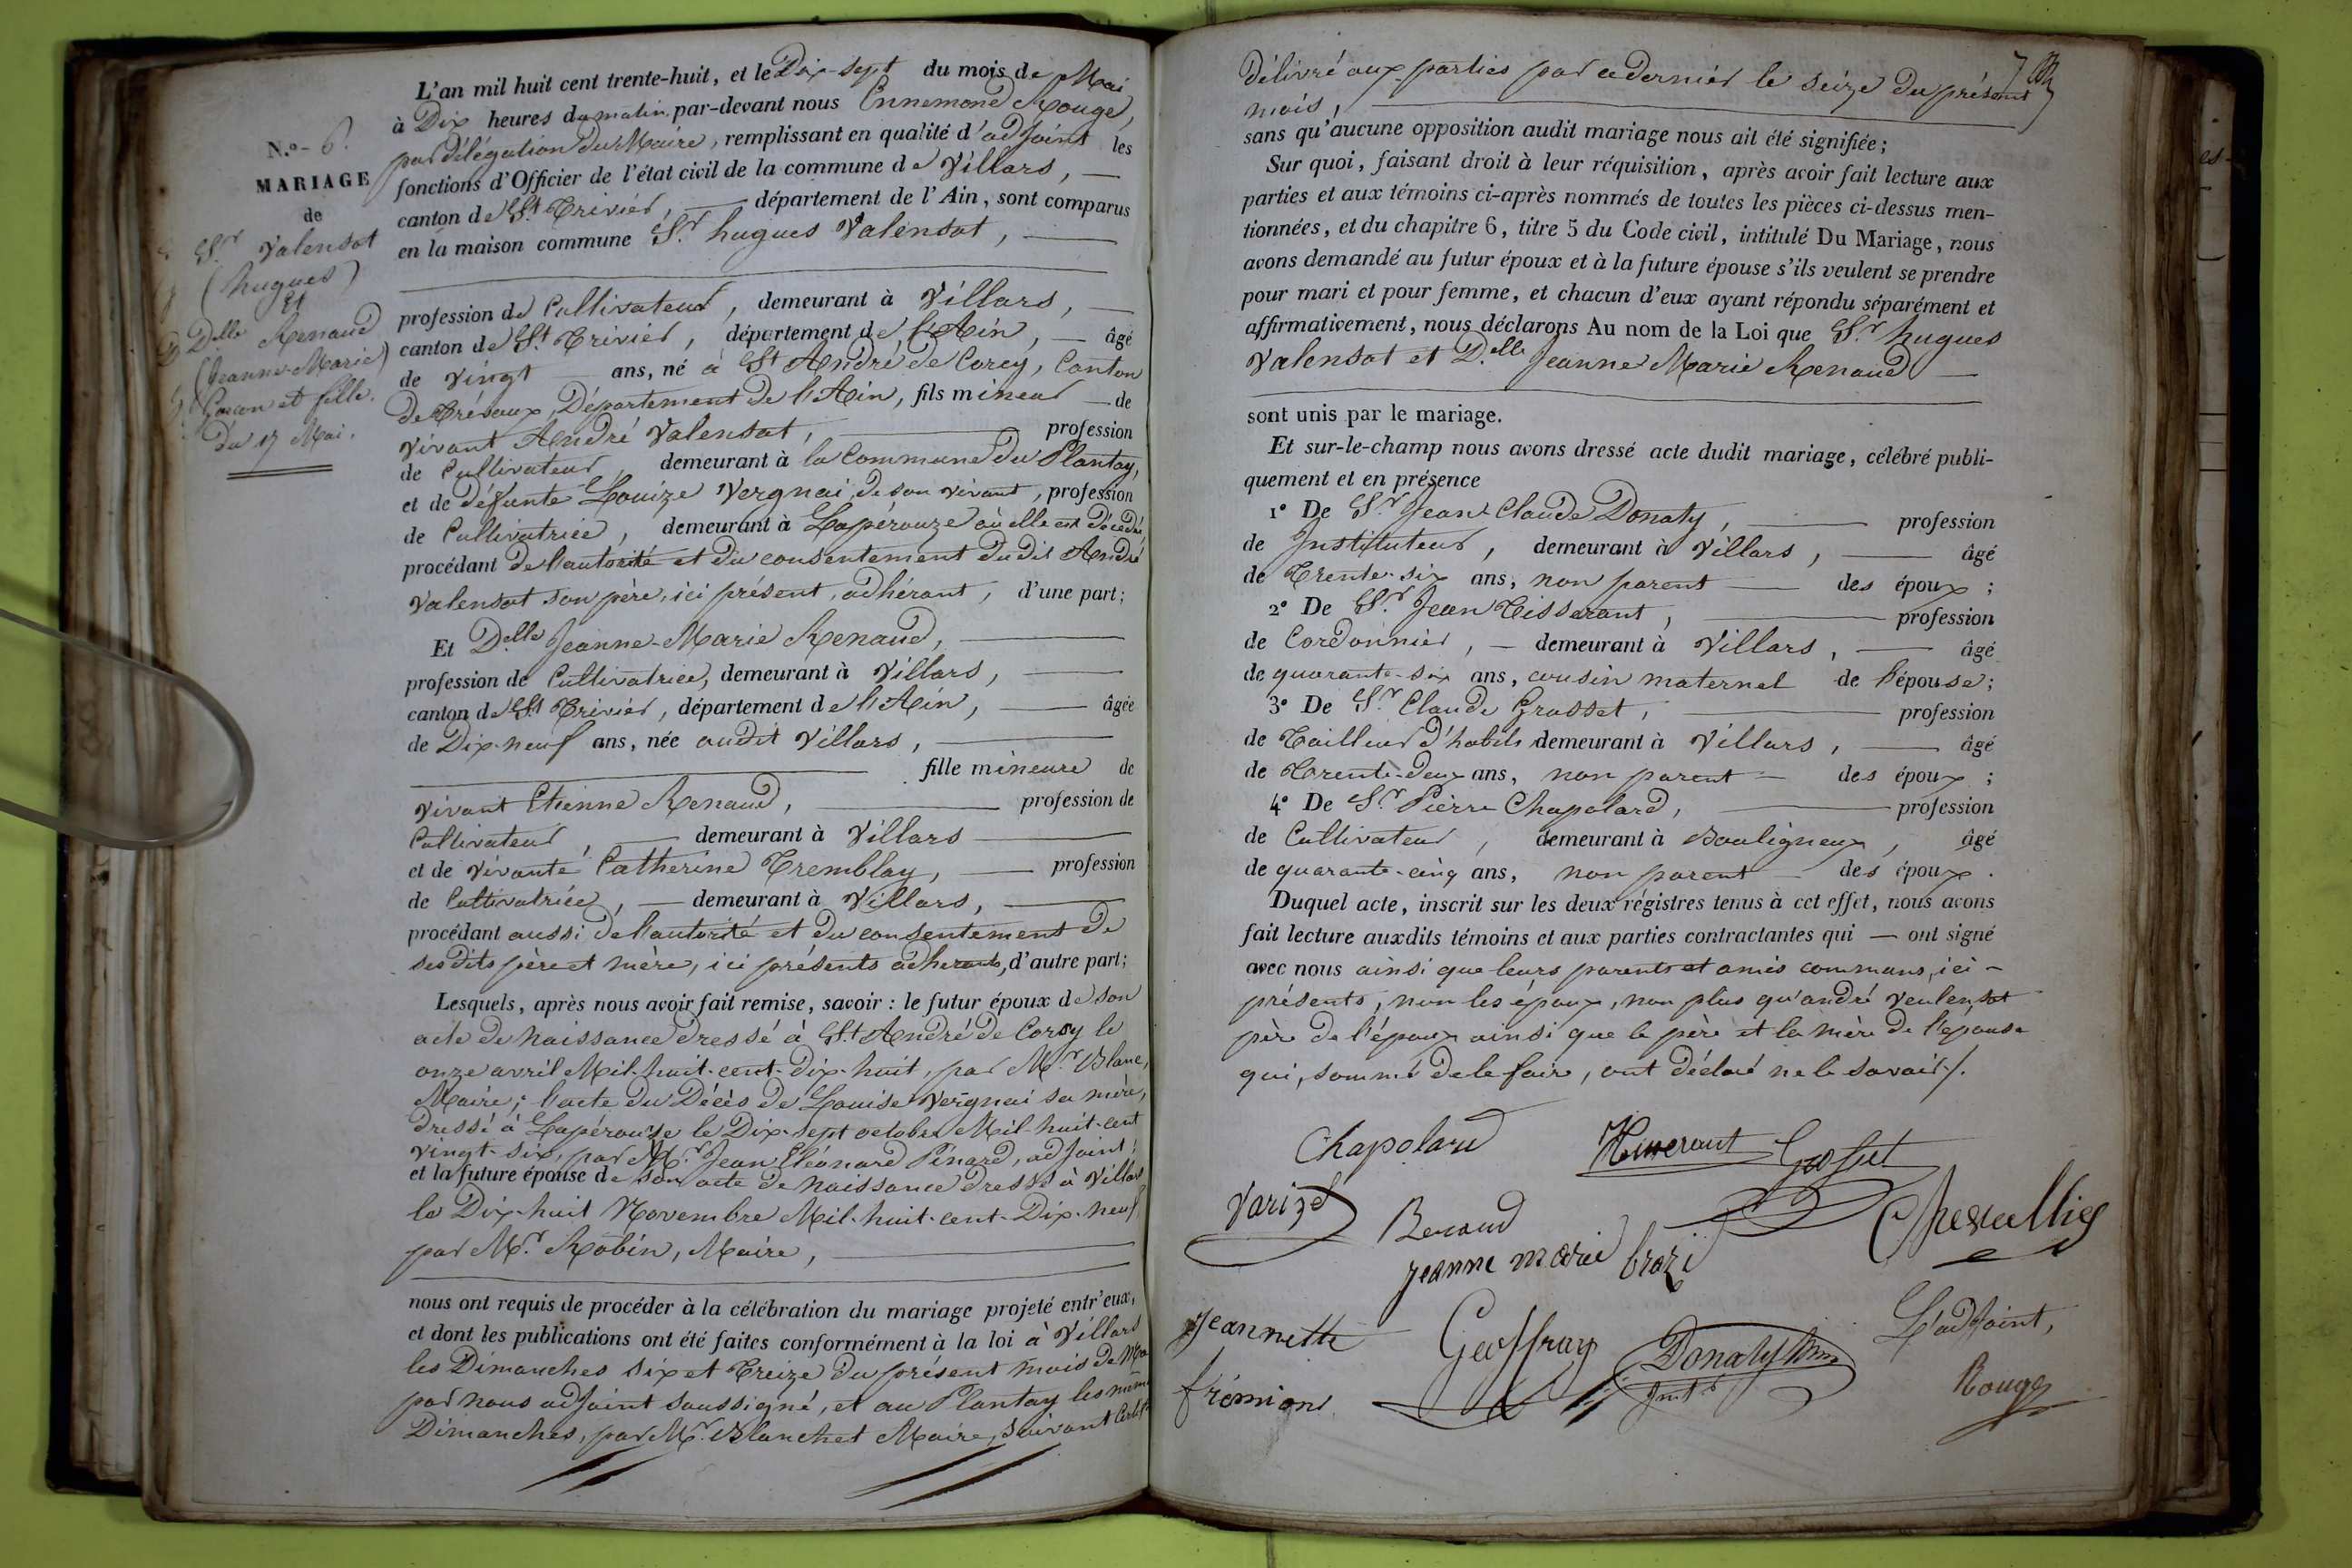 N.º - 6.
MARIAGE
de
Sr Valensot
(hugues)
et
Delle Renaud
(Jeanne-Marie)
Garcon et fille.
du 17 Mai.
L'an mil huit cent trente-huit, et le Dix-sept du mois de Mai
à Dix heures du matin, par-devant nous Ennemond Rouge,
par délégation du Maire, remplissant en qualité d'adjoint les
fonctions d'Officier de l'état civil de la commune de Villars,
canton de St Trivier, département de l'Ain, sont comparus
en la maison commune Sr. hugues Valensot,
profession de Cultivateur, demeurant à Villars,
canton de St Trivier, département de l'Ain, âgé
de vingt ans, né à St André de Corcy, Canton
de Trévoux, Département de l'Ain, fils mineur de
vivant André Valensot, profession
de Cultivateur, demeurant à la Commune du Plantay,
et de défunte Louize Vergnai, de son vivant, profession
de Cultivatrice, demeurant à Lapérouze où elle est décédée,
procédant de l'autorité et du consentement du dit André
Valensot son père, ici présent, adhérant, d'une part;
Et D.elle Jeanne-Marie Renaud,
profession de Cultivatrice, demeurant à Villars,
canton de St Trivier, département de l'Ain, âgée
de Dix-neuf ans, née audit Villars,
fille mineure de
vivant Etienne Renaud, profession de
Cultivateur, demeurant à Villars
et de vivante Catherine Tremblay, profession
de Cultivatrice, demeurant à Villars,
procédant aussi de l'autorité et du consentement de
ses dits père et mère, ici présents adhérants, d'autre part;
Lesquels, après nous avoir fait remise, savoir : le futur époux de son
acte de naissance dressé à St. André de Corcy le
onze avril Mil-huit-cent-dix-huit, par Mr. Blanc,
Maire; l'acte du Décès de Louise Vergnai sa mère,
dressé à Lapérouse le Dix-sept octobre Mil-huit-cent
vingt-six, par Mr. Jean Eléonard Pénard, adjoint;
et la future épouse de son acte de naissance dressé à Villars
le Dix-huit Novembre Mil-huit-cent-Dix-neuf,
par Mr. Robin, Maire,
nous ont requis de procéder à la célébration du mariage projeté entr'eux,
et dont les publications ont été faites conformément à la loi à Villars
les Dimanches six et Treize du présent mois de Mai
par nous adjoint soussigné, et au Plantay les mêmes
Dimanches, par Mr. Blanchet Maire, suivant
7
délivré aux parties par ce dernier le seize du présent
mois,
sans qu'aucune opposition audit mariage nous ait été signifiée;
Sur quoi, faisant droit à leur réquisition, après avoir fait lecture aux
parties et aux témoins ci-après nommés de toutes les pièces ci-dessus men-
tionnées, et du chapitre 6, titre 5 du Code civil, intitulé Du Mariage, nous
avons demandé au futur époux et à la future épouse s'ils veulent se prendre
pour mari et pour femme, et chacun d'eux ayant répondu séparément et
affirmativement, nous déclarons Au nom de la Loi que Sr. hugues
Valensot et D.elle Jeanne Marie Renaud
sont unis par le mariage.
Et sur-le-champ nous avons dressé acte dudit mariage, célébré publi-
quement et en présence
1º De Sr. Jean Claude Donaty, profession
de Instituteur, demeurant à Villars, âgé
de Trente-six ans, non parent des époux;
2º De Sr. Jean Tisserant, profession
de Cordonnier, demeurant à Villars, âgé
de quarante-six ans, cousin maternel de l'épouse;
3º De Sr. Claude Grosset, profession
de Tailleur d'habits demeurant à Villars, âgé
de Trente-deux ans, non parent des époux;
4º De Sr. Pierre Chapolard, profession
de Cultivateur, demeurant à Bouligneux, âgé
de quarante-cinq ans, non parent des époux.
Duquel acte, inscrit sur les deux régistres tenus à cet effet, nous avons
fait lecture auxdits témoins et aux parties contractantes qui — ont signé
avec nous ainsi que leurs parents et amis communs, ici-
présents, non les époux, non plus qu'andré Veulensot
père de l'époux ainsi que le père et la mère de l'épouse
qui, sommé de le faire, ont déclaré ne le savoir /.
Chapolard
Grosset
Varizel
Renaud
jeanne marie brazi
jeannette
frémion
Geoffray
Donaty
Insttr
L'adjoint,
Rouge